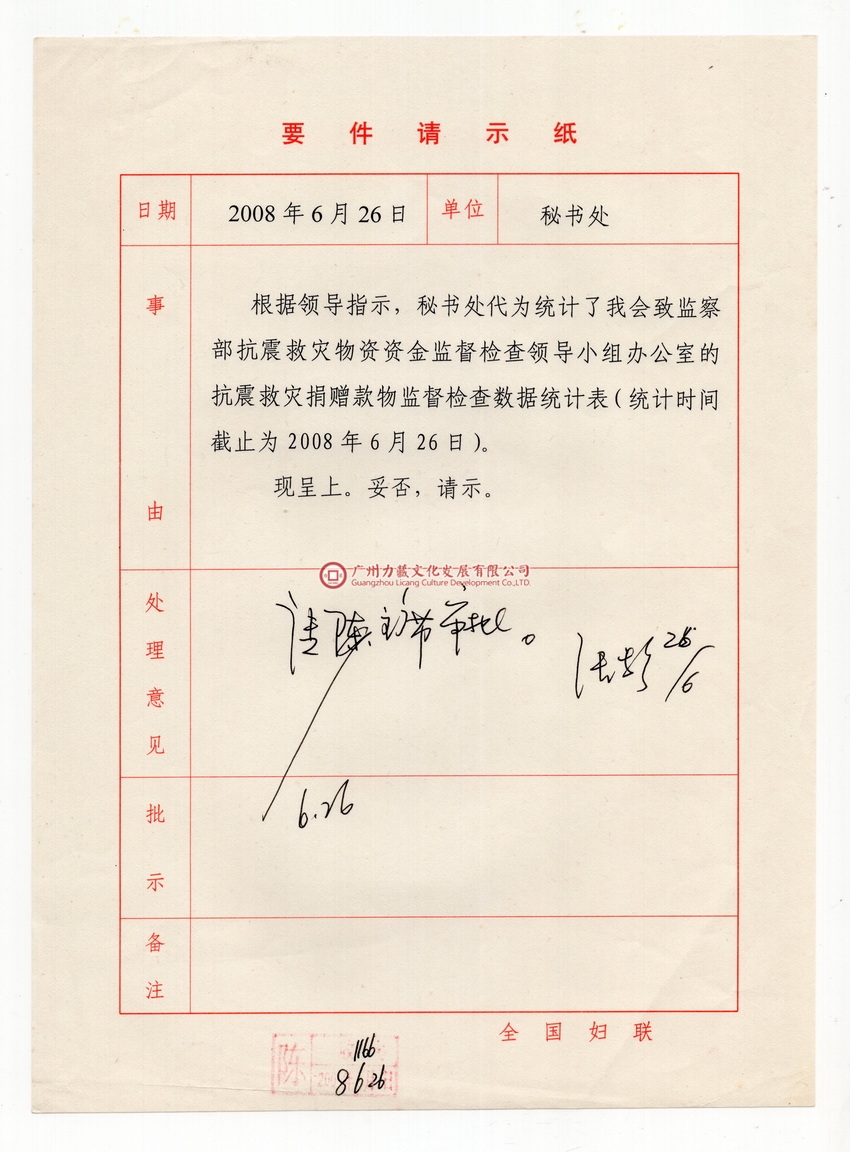 要件请示纸
日期 2008年6月26日 单位 秘书处
事由
根据领导指示，秘书处代为统计了我会致监察
部抗震救灾物资资金监督检查领导小组办公室的
抗震救灾捐赠款物监督检查数据统计表(统计时间
截止为2008年6月26日)。
现呈上。妥否，请示。
广州力藏文化发展有限公司
Guangzhou Licang Culture Development Co.,LTD.
处理意见
请陈主席审批。
26/6
批示
6.26
备注
全国妇联
陈
1166
8 6 26